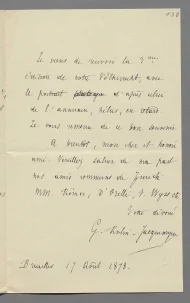 130
Je viens de recevoir la 2me
édition de votre Völkerrecht, avec
le portrait et d'après celui
de l'annuaire, hélas, en retard.
Je vous remercie de ce bon souvenir.
A bientôt, mon cher et honoré
ami. Veuillez saluer de ma part
nos amis communs de Zurich
MM. d'Orelli, v. Wyss et
Votre dévoué
G. Rolin-Jaequemyns
Bruxelles 17 Août 1878.